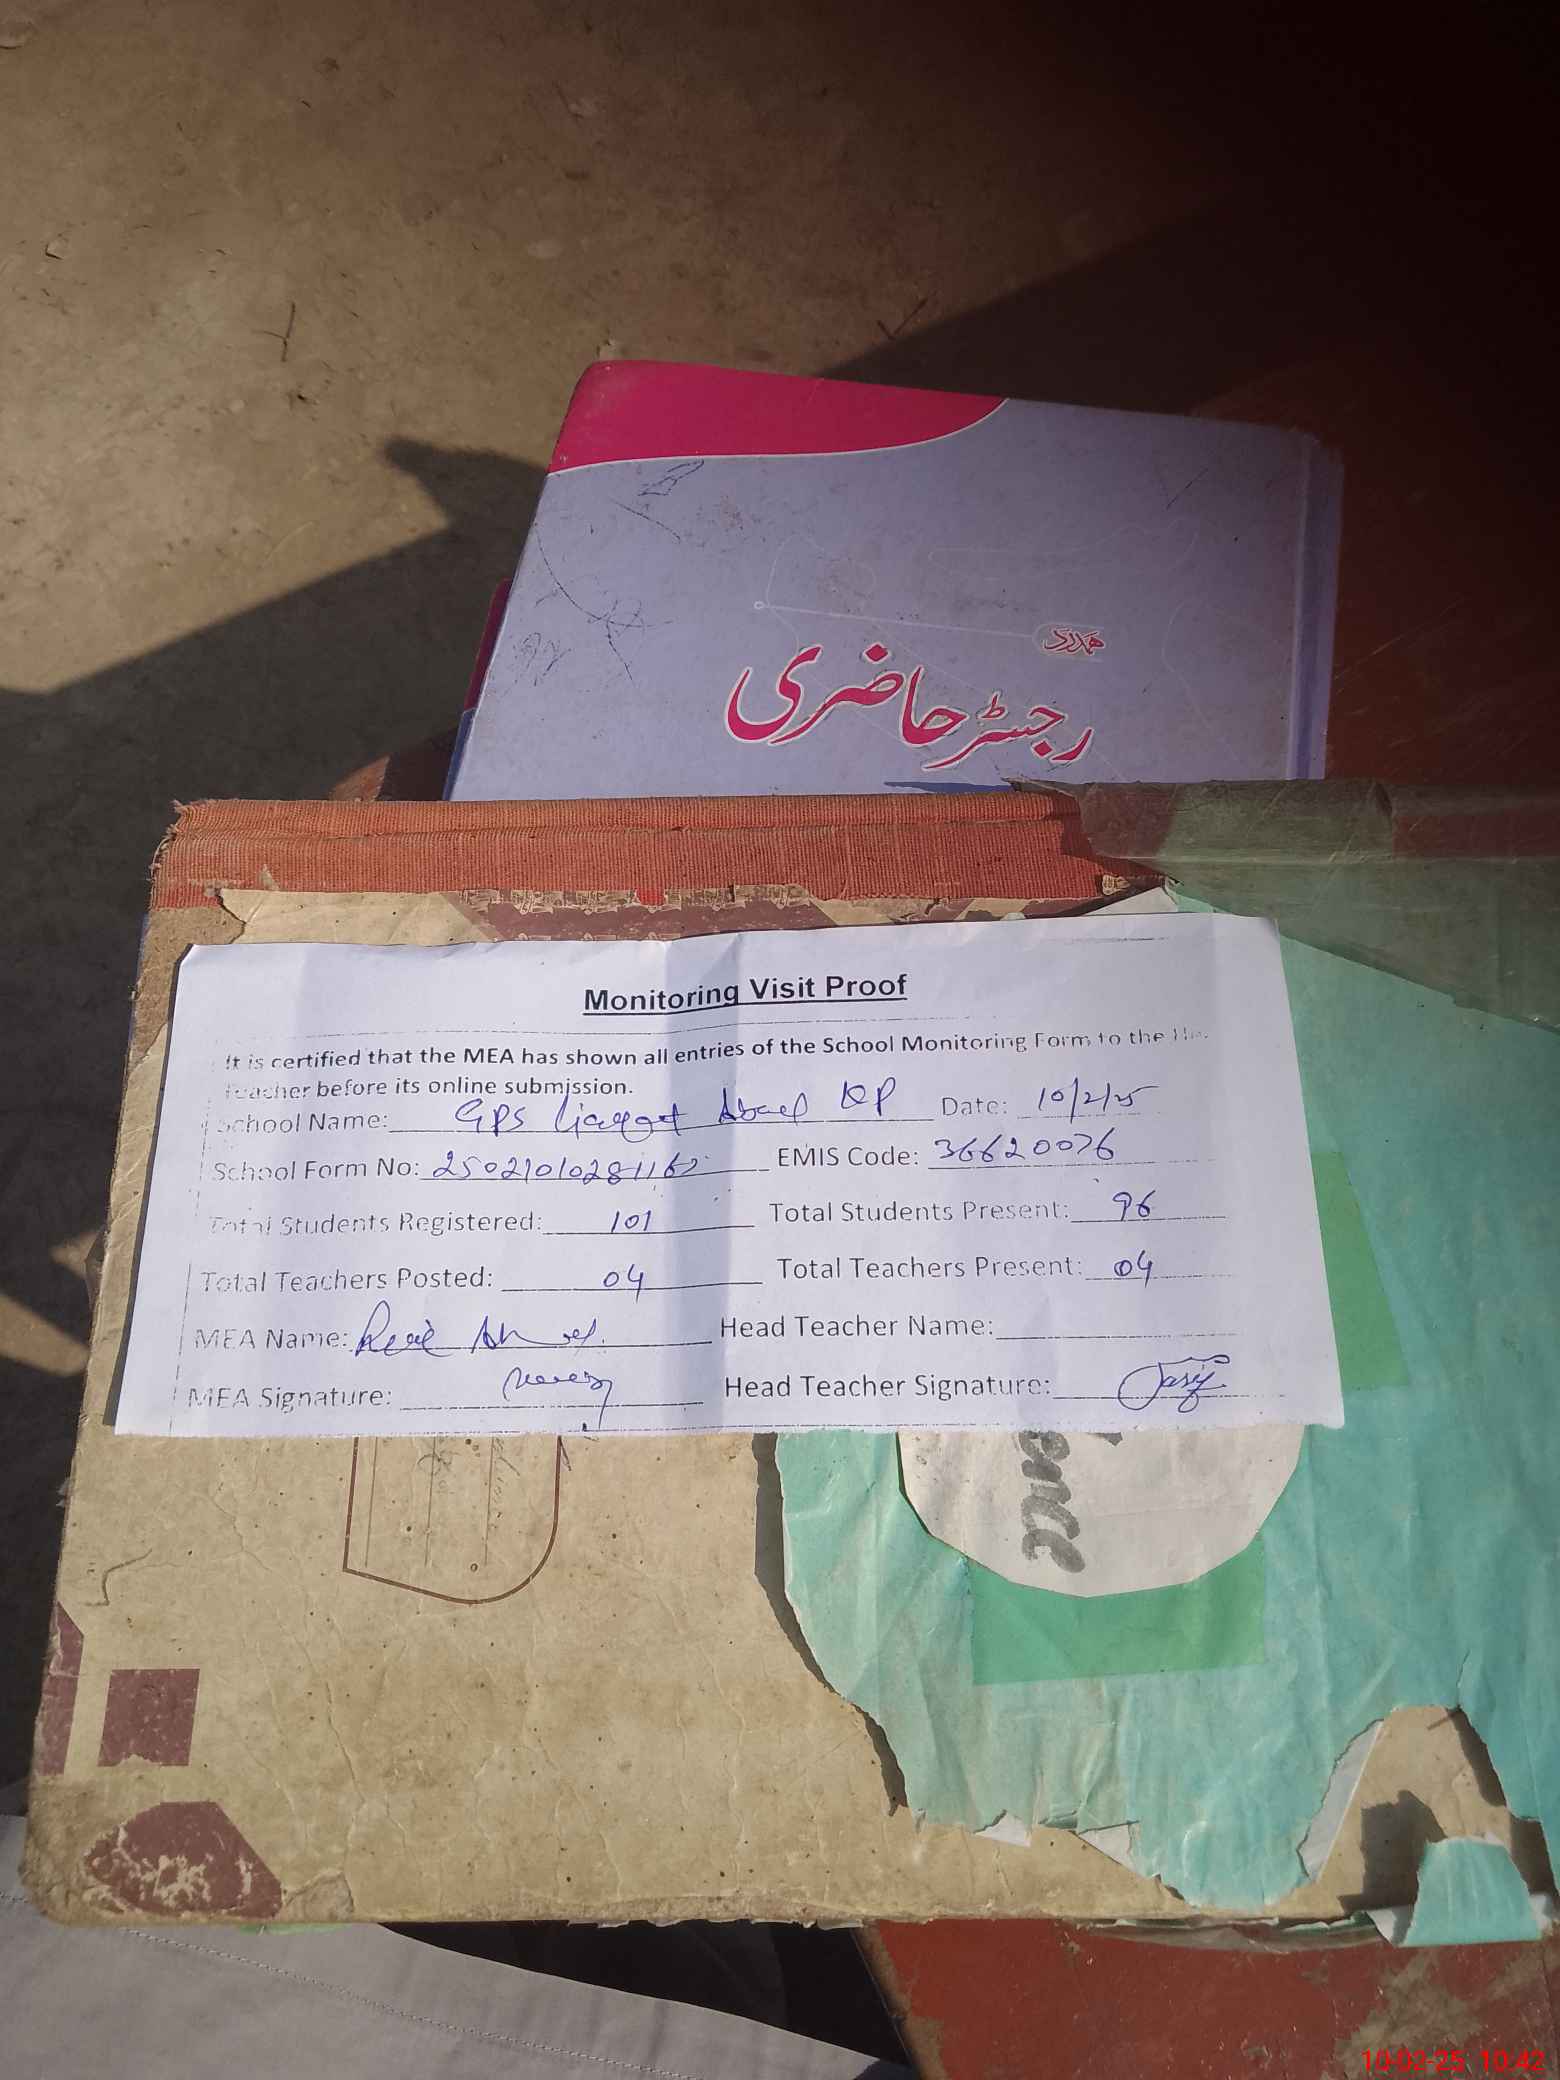 ہمدرد
رجسٹر حاضری
Monitoring Visit Proof
It is certified that the MEA has shown all entries of the School Monitoring Form to the
Teacher before its online submission.
School Name: GPS Liaqat Abad Date: 10/2/25
School Form No: EMIS Code: 36620076
Total Students Registered: 101 Total Students Present: 96
Total Teachers Posted: 04 Total Teachers Present: 04
MEA Name: Head Teacher Name:
MEA Signature: Head Teacher Signature:
10-02-25 10:42